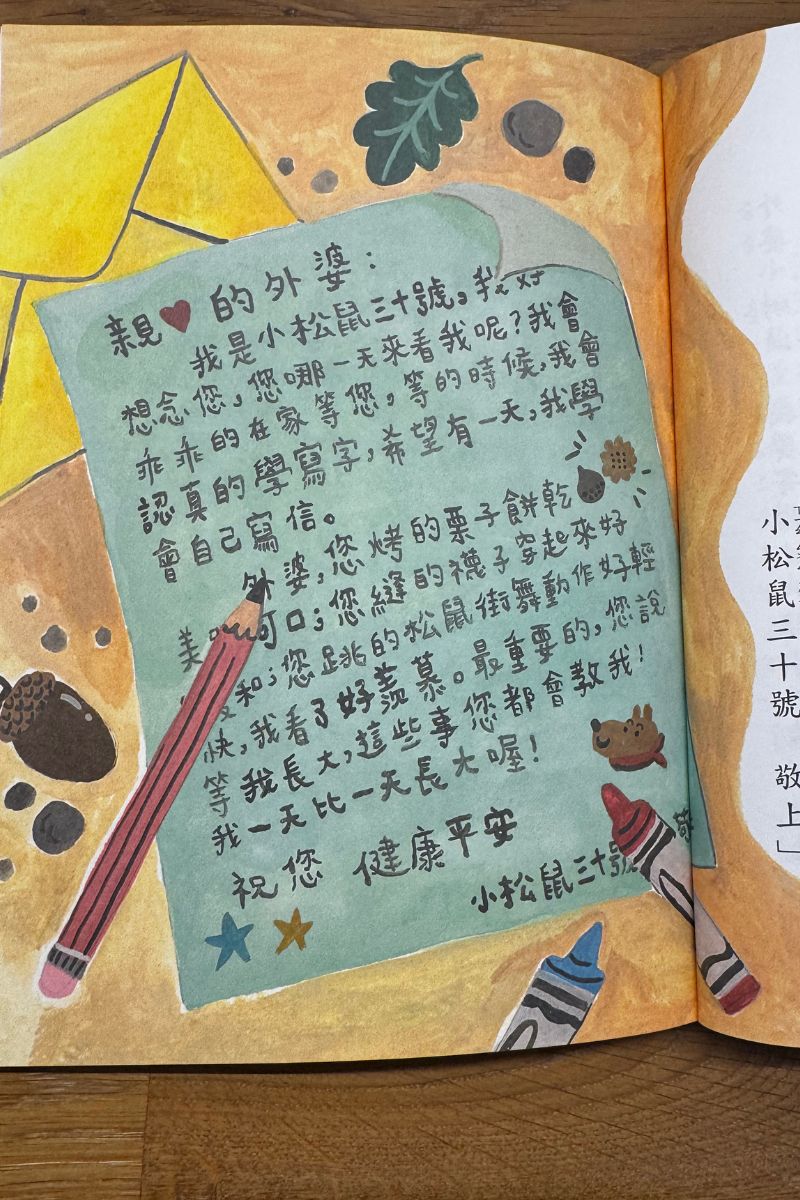 親❤的外婆：
我是小松鼠三十號，我好
想念您，您哪一天來看我呢？我會
乖乖的在家等您，等的時候，我會
認真的學寫字，希望有一天，我學
會自己寫信。
外婆，您烤的栗子餅乾
美可口；您縫的襪子穿起來好
和；您跳的松鼠街舞動作好輕
快，我看了好羨慕。最重要的，您說
等我長大，這些事您都會教我！
我一天比一天長大喔！
祝您 健康平安
小松鼠三十號 敬
小松鼠三十號 敬上」